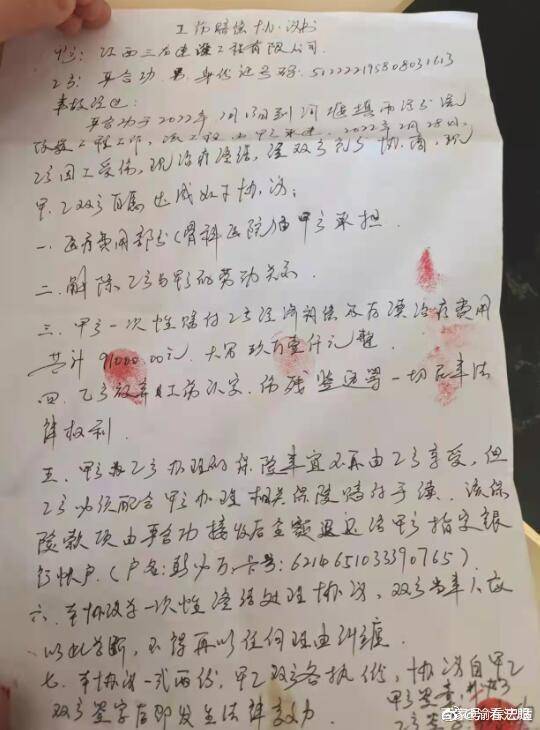 工伤赔偿协议书
甲方：江西三石建设工程有限公司.
乙方：平合功 男 身份证号码：512222195808031613
事故经过：
平合功于2022年2月13日到河堰镇
工程工作，该工程由甲方承建．2022年2月28日，
乙方因工受伤，现治疗终结，经双方充分协商，现
甲、乙双方自愿达成如下协议：
一．医疗费用部分(骨科医院)由甲方承担．
二．解除乙方与甲方的劳动关系．
三．甲方一次性赔付乙方经济补偿及后续治疗费用
共计91000.00元．大写玖万壹仟元整．
四．乙方放弃工伤认定、伤残鉴定等一切法
律权利．
五．甲方为乙方办理的保险事宜不再由乙方享受，但
乙方必须配合甲方办理相关保险赔付手续．该保
险款项由平合功接收后全额退还给甲方指定银
行帐户（户名：万．卡号：6214651033390765）．
六．本协议为一次性终结处理协议，双方当事人应
以此为断，不得再以任何理由纠缠．
七．本协议一式两份，甲乙双方各执一份，协议自甲乙
双方签字后即发生法律效力．
甲方签章：
乙方签字：
百家号/渝看法治